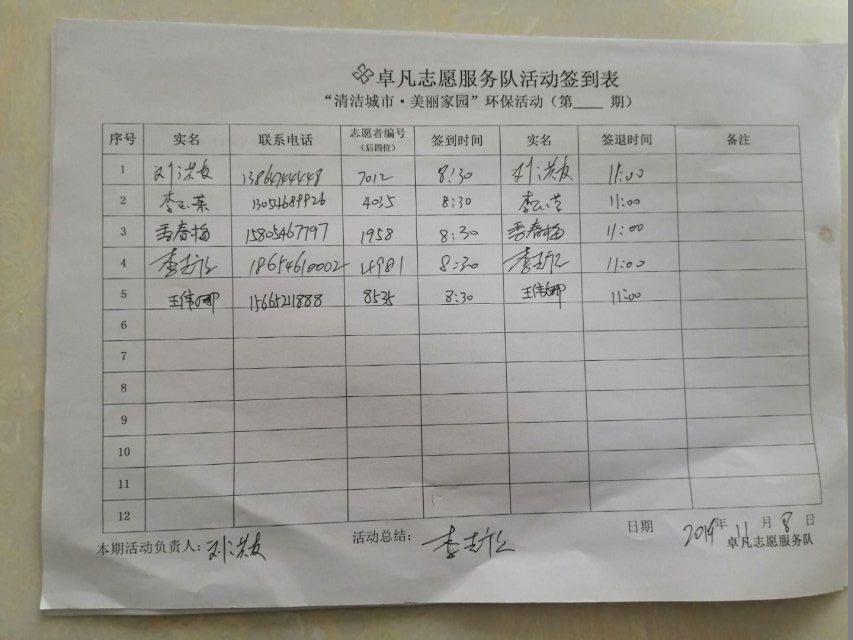 卓凡志愿服务队活动签到表
“清洁城市·美丽家园”环保活动（第____期）
序号 实名 联系电话 志愿者编号（后四位） 签到时间 实名 签退时间 备注
1 刘洪友 7012 8:30 刘洪友 11:00
2 13054689926 4035 8:30 11:00
3 15805467797 1958 8:30 11:00
4 18654610002 4981 8:30 11:00
5 王伟娜 15665221888 8535 8:30 王伟娜 11:00
6
7
8
9
10
11
12
本期活动负责人：刘洪友 活动总结： 日期 2019年11月8日
卓凡志愿服务队